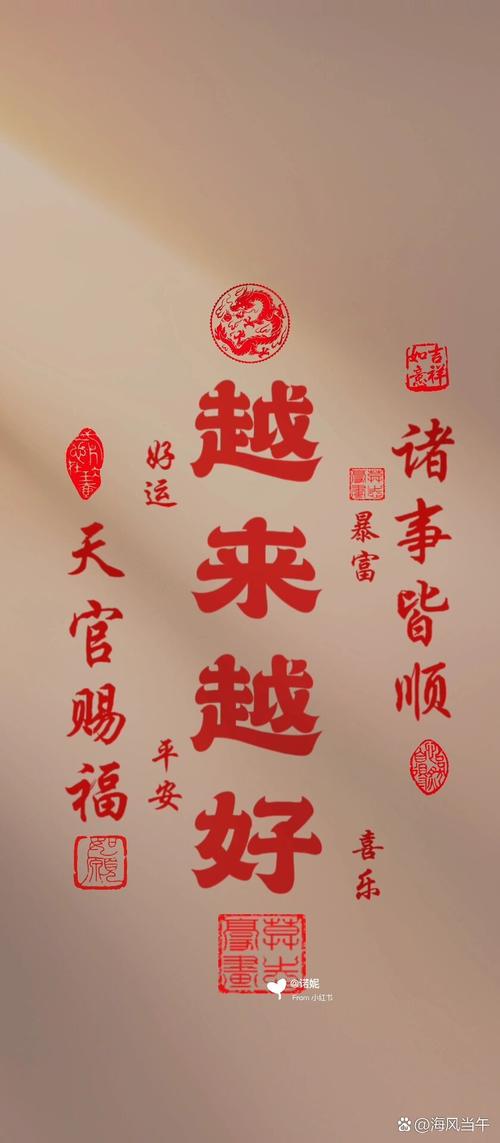 越来越好
吉祥
如意
诸事皆顺
暴富
喜乐
好运
平安
天官赐福
如愿
@诺妮
From 小红书
@海风当午